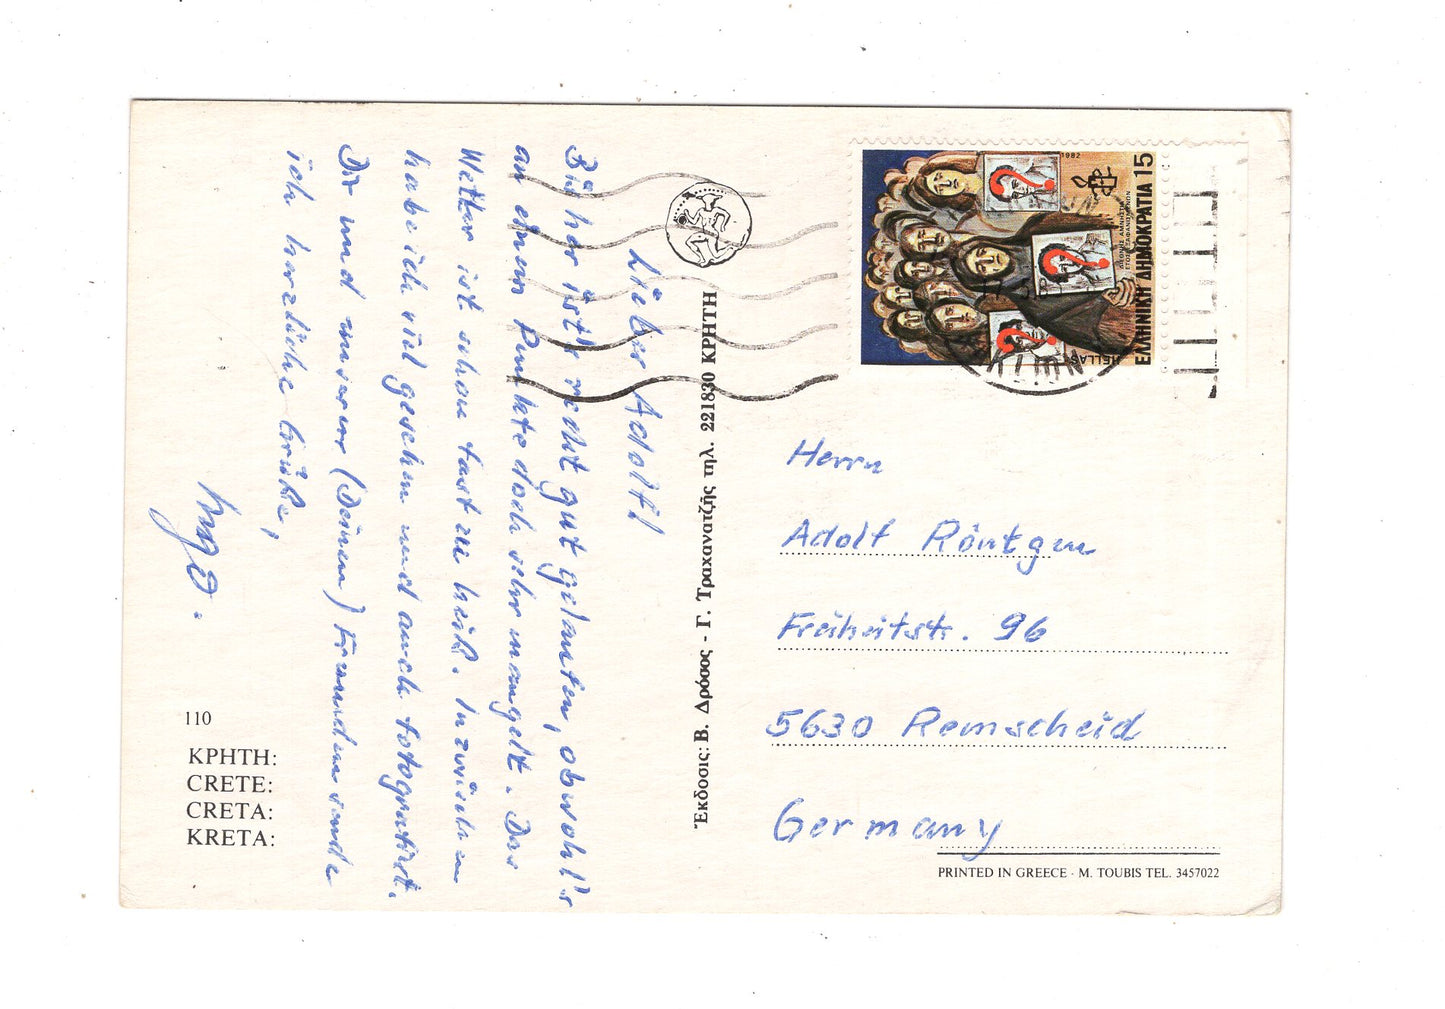 Lieber Adolf!
Bisher ist's recht gut gelaufen, obwohl's
an einem Punkte doch sehr mangelt. Das
Wetter ist schon fast zu heiß. Inzwischen
habe ich viel gesehen und auch fotografiert.
Dir und unseren (Deinen) Freunden sende
ich herzliche Grüße,
110
ΚΡΗΤΗ:
CRETE:
CRETA:
KRETA:
Έκδοσις: Β. Δρόσος - Γ. Τραχανατζής τηλ. 221830 ΚΡΗΤΗ
1982
ΕΛΛΗΝΙΚΗ ΔΗΜΟΚΡΑΤΙΑ 15
HELLAS
Herrn
Adolf Röntgen
Freiheitstr. 96
5630 Remscheid
Germany
PRINTED IN GREECE · M. TOUBIS TEL. 3457022